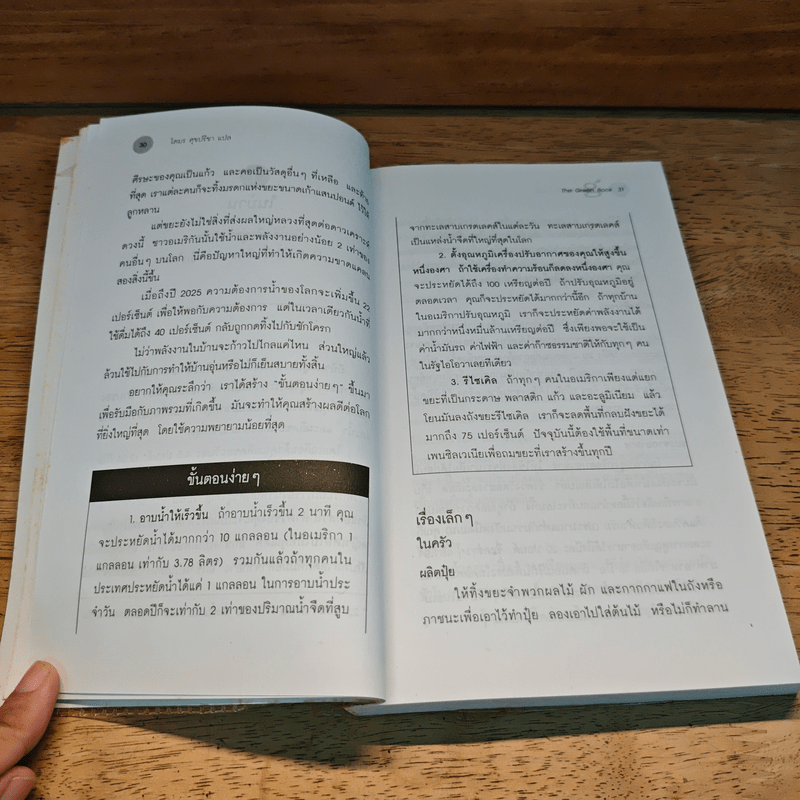 30 โตมร ศุขปรีชา แปล
ศีรษะของคุณเป็นแก้ว และคอเป็นวัสดุอื่นๆ ที่เหลือ และท้าย
ที่สุด เราแต่ละคนก็จะทิ้งมรดกแห่งขยะขนาดเก้าแสนปอนด์ ไว้ให้
ลูกหลาน
แต่ขยะยังไม่ใช่สิ่งที่ส่งผลใหญ่หลวงที่สุดต่อดาวเคราะห์
ดวงนี้ ชาวอเมริกันนั้นใช้น้ำและพลังงานอย่างน้อย 2 เท่าของ
คนอื่นๆ บนโลก นี่คือปัญหาใหญ่ที่ทำให้เกิดความขาดแคลน
สองสิ่งนี้ขึ้น
เมื่อถึงปี 2025 ความต้องการน้ำของโลกจะเพิ่มขึ้น 22
เปอร์เซ็นต์ เพื่อให้พอกับความต้องการ แต่ในเวลาเดียวกันน้ำที่
ใช้ดื่มได้ถึง 40 เปอร์เซ็นต์ กลับถูกกดทิ้งไปกับชักโครก
ไม่ว่าพลังงานในบ้านจะก้าวไปไกลแค่ไหน ส่วนใหญ่แล้ว
ล้วนใช้ไปกับการทำให้บ้านอุ่นหรือไม่ก็เย็นสบายทั้งสิ้น
อยากให้คุณระลึกว่า เราได้สร้าง "ขั้นตอนง่ายๆ" ขึ้นมา
เพื่อรับมือกับภาพรวมที่เกิดขึ้น มันจะทำให้คุณสร้างผลดีต่อโลก
ที่ยิ่งใหญ่ที่สุด โดยใช้ความพยายามน้อยที่สุด
ขั้นตอนง่ายๆ
1. อาบน้ำให้เร็วขึ้น ถ้าอาบน้ำเร็วขึ้น 2 นาที คุณ
จะประหยัดน้ำได้มากกว่า 10 แกลลอน (ในอเมริกา 1
แกลลอน เท่ากับ 3.78 ลิตร) รวมกันแล้วถ้าทุกคนใน
ประเทศประหยัดน้ำได้แค่ 1 แกลลอน ในการอาบน้ำประ
จำวัน ตลอดปีก็จะเท่ากับ 2 เท่าของปริมาณน้ำจืดที่สูบ
The Green Book 31
จากทะเลสาบเกรตเลคส์ในแต่ละวัน ทะเลสาบเกรตเลคส์
เป็นแหล่งน้ำจืดที่ใหญ่ที่สุดในโลก
2. ตั้งอุณหภูมิเครื่องปรับอากาศของคุณให้สูงขึ้น
หนึ่งองศา ถ้าใช้เครื่องทำความร้อนก็ลดลงหนึ่งองศา คุณ
จะประหยัดได้ถึง 100 เหรียญต่อปี ถ้าปรับอุณหภูมิอยู่
ตลอดเวลา คุณก็จะประหยัดได้มากกว่านี้อีก ถ้าทุกบ้าน
ในอเมริกาปรับอุณหภูมิ เราก็จะประหยัดค่าพลังงานได้
มากกว่าหนึ่งหมื่นล้านเหรียญต่อปี ซึ่งเพียงพอจะใช้เป็น
ค่าน้ำมันรถ ค่าไฟฟ้า และค่าก๊าซธรรมชาติให้กับทุกๆ คน
ในรัฐไอโอวาเลยทีเดียว
3. รีไซเคิล ถ้าทุกๆ คนในอเมริกาเพียงแต่แยก
ขยะที่เป็นกระดาษ พลาสติก แก้ว และอะลูมิเนียม แล้ว
โยนมันลงถังขยะรีไซเคิล เราก็จะลดพื้นที่กลบฝังขยะได้
มากถึง 75 เปอร์เซ็นต์ ปัจจุบันนี้ต้องใช้พื้นที่ขนาดเท่า
เพนซิลเวเนียเพื่อถมขยะที่เราสร้างขึ้นทุกปี
เรื่องเล็กๆ
ในครัว
ผลิตปุ๋ย
ให้ทิ้งขยะจำพวกผลไม้ ผัก และกากกาแฟในถังหรือ
ภาชนะเพื่อเอาไว้ทำปุ๋ย ลองเอาไปใส่ต้นไม้ หรือไม่ก็ทำลาน